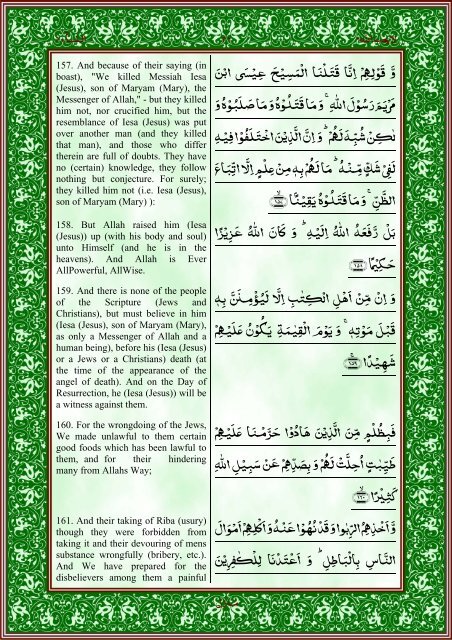 157. And because of their saying (in
boast), "We killed Messiah Iesa
(Jesus), son of Maryam (Mary), the
Messenger of Allah," - but they killed
him not, nor crucified him, but the
resemblance of Iesa (Jesus) was put
over another man (and they killed
that man), and those who differ
therein are full of doubts. They have
no (certain) knowledge, they follow
nothing but conjecture. For surely;
they killed him not (i.e. Iesa (Jesus),
son of Maryam (Mary) ):
وَّ قَوْلِهِمْ اِنَّا قَتَلْنَا الْمَسِيْحَ عِيْسَى ابْنَ
مَرْيَمَ رَسُوْلَ اللّٰهِ ۚ وَمَا قَتَلُوْهُ وَمَا صَلَبُوْهُ وَ
لٰكِنْ شُبِّهَ لَهُمْ ؕ وَ اِنَّ الَّذِيْنَ اخْتَلَفُوْا فِيْهِ
لَفِيْ شَكٍّ مِّنْهُ ؕ مَا لَهُمْ بِهٖ مِنْ عِلْمٍ اِلَّا اتِّبَاعَ
الظَّنِّ ۚ وَمَا قَتَلُوْهُ يَقِيْنًۢا ۙ ﴿۱۵۷﴾
158. But Allah raised him (Iesa
(Jesus)) up (with his body and soul)
unto Himself (and he is in the
heavens). And Allah is Ever
AllPowerful, AllWise.
بَلْ رَّفَعَهُ اللّٰهُ اِلَيْهِ ؕ وَ كَانَ اللّٰهُ عَزِيْزًا
حَكِيْمًا ﴿۱۵۸﴾
159. And there is none of the people
of the Scripture (Jews and
Christians), but must believe in him
(Iesa (Jesus), son of Maryam (Mary),
as only a Messenger of Allah and a
human being), before his (Iesa (Jesus)
or a Jews or a Christians) death (at
the time of the appearance of the
angel of death). And on the Day of
Resurrection, he (Iesa (Jesus)) will be
a witness against them.
وَ اِنْ مِّنْ اَهْلِ الْكِتٰبِ اِلَّا لَيُؤْمِنَنَّ بِهٖ
قَبْلَ مَوْتِهٖ ۚ وَ يَوْمَ الْقِيٰمَةِ يَكُوْنُ عَلَيْهِمْ
شَهِيْدًا ﴿۱۵۹﴾
160. For the wrongdoing of the Jews,
We made unlawful to them certain
good foods which has been lawful to
them, and for their hindering
many from Allahs Way;
فَبِظُلْمٍ مِّنَ الَّذِيْنَ هَادُوْا حَرَّمْنَا عَلَيْهِمْ
طَيِّبٰتٍ اُحِلَّتْ لَهُمْ وَ بِصَدِّهِمْ عَنْ سَبِيْلِ اللّٰهِ
كَثِيْرًا ۙ ﴿۱۶۰﴾
161. And their taking of Riba (usury)
though they were forbidden from
taking it and their devouring of mens
substance wrongfully (bribery, etc.).
And We have prepared for the
disbelievers among them a painful
وَّ اَخْذِهِمُ الرِّبٰوا وَ قَدْ نُهُوْا عَنْهُ وَ اَكْلِهِمْ اَمْوَالَ
النَّاسِ بِالْبَاطِلِ ؕ وَ اَعْتَدْنَا لِلْكٰفِرِيْنَ